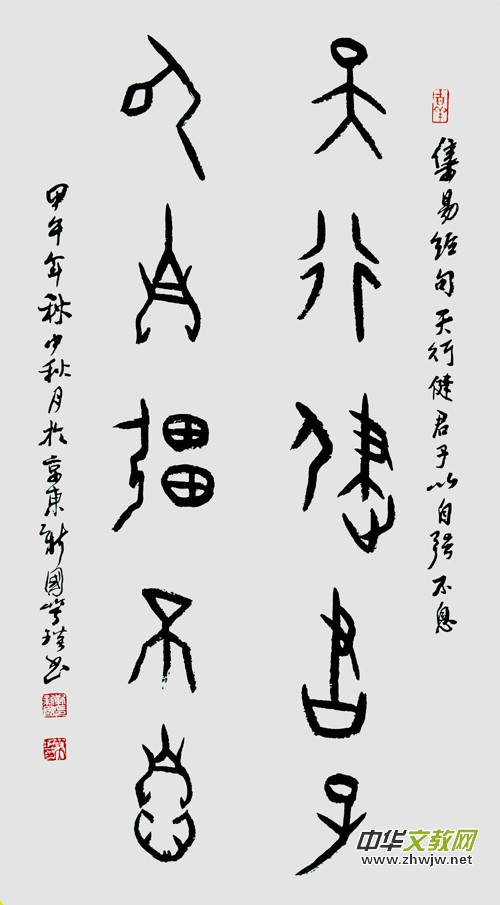 集易经句天行健君子以自强不息
天行健君子
以自彊不息
甲午年秋中秋月於京東新國书
中华文教网
www.zhwjw.net